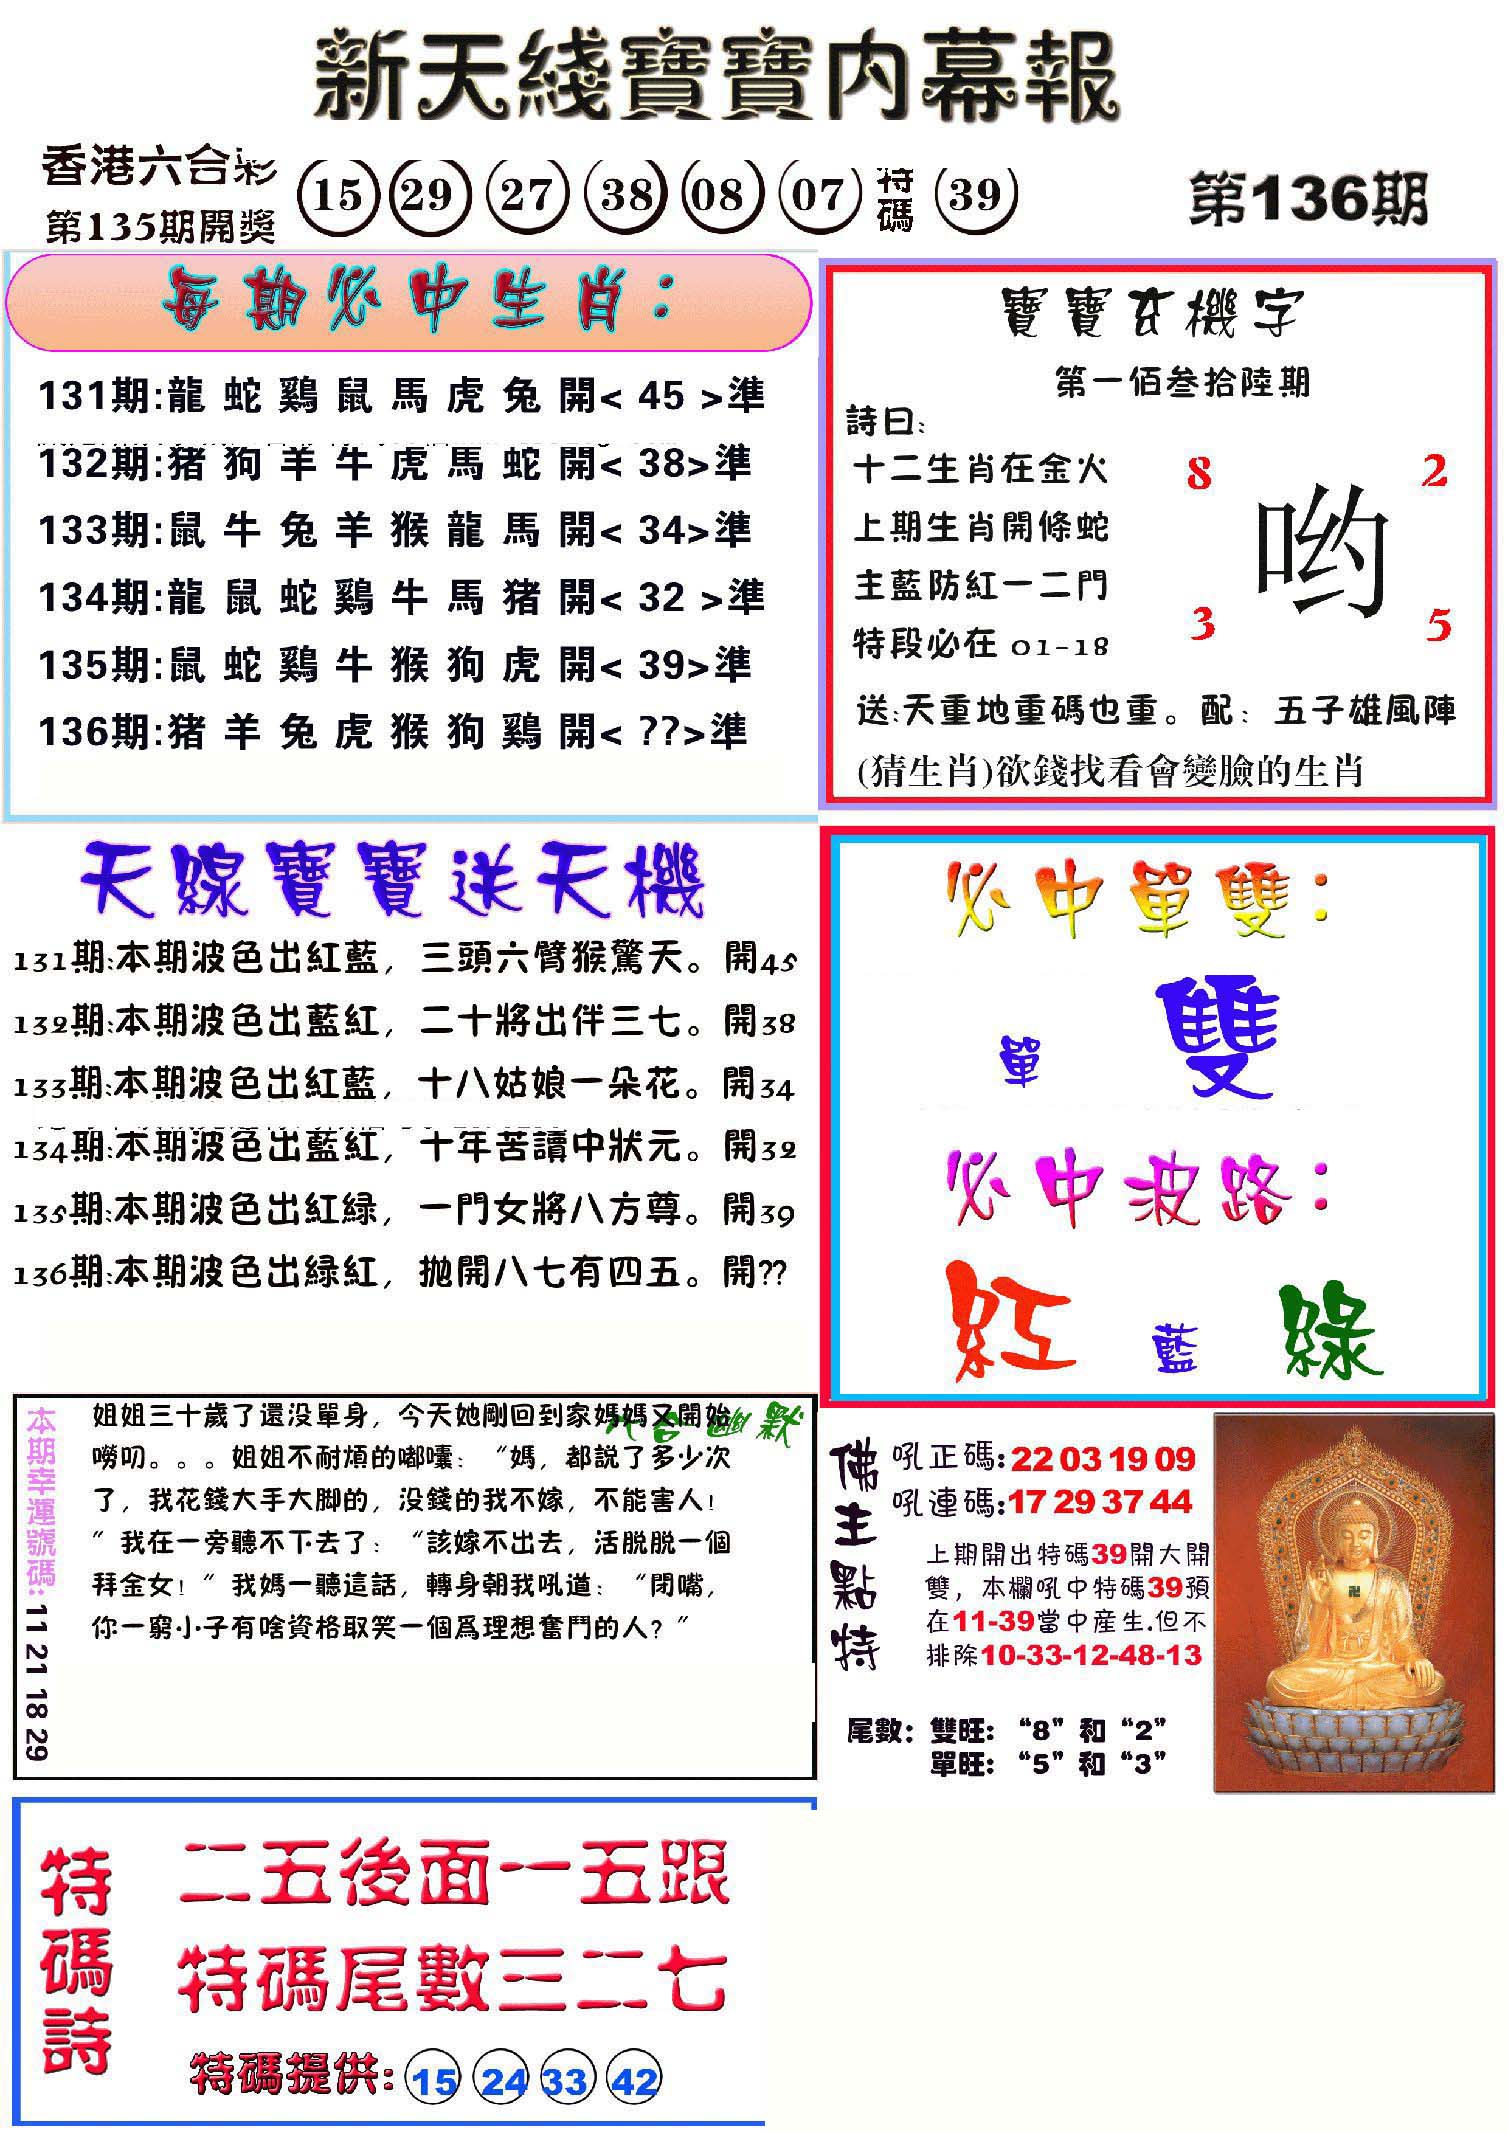 新天綫寶寶内幕報
香港六合彩
第135期開獎
15 29 27 38 08 07 特碼 39
第136期
每期必中生肖：
131期:龍 蛇 鷄 鼠 馬 虎 兔 開< 45 >準
132期:猪 狗 羊 牛 虎 馬 蛇 開< 38>準
133期:鼠 牛 兔 羊 猴 龍 馬 開< 34>準
134期:龍 鼠 蛇 鷄 牛 馬 猪 開< 32 >準
135期:鼠 蛇 鷄 牛 猴 狗 虎 開< 39>準
136期:猪 羊 兔 虎 猴 狗 鷄 開< ??>準
寶寶玄機字
第一佰叁拾陸期
詩曰:
十二生肖在金火
上期生肖開條蛇
主藍防紅一二門
特段必在 01-18
8 2
哟
3 5
送:天重地重碼也重。配：五子雄風陣
(猜生肖)欲錢找看會變臉的生肖
天線寶寶送天機
131期:本期波色出紅藍，三頭六臂猴驚天。開45
132期:本期波色出藍紅，二十將出伴三七。開38
133期:本期波色出紅藍，十八姑娘一朵花。開34
134期:本期波色出藍紅，十年苦讀中狀元。開32
135期:本期波色出紅緑，一門女將八方尊。開39
136期:本期波色出緑紅，拋開八七有四五。開??
必中單雙：
單 雙
必中波路：
紅 藍 綠
本期幸運號碼:11 21 18 29
六合幽默
姐姐三十歲了還没單身，今天她剛回到家媽媽又開始
嘮叨。。。姐姐不耐煩的嘟囔：“媽，都説了多少次
了，我花錢大手大脚的，没錢的我不嫁，不能害人！
”我在一旁聽不下去了：“該嫁不出去，活脱脱一個
拜金女！”我媽一聽這話，轉身朝我吼道：“閉嘴，
你一窮小子有啥資格取笑一個爲理想奮鬥的人？”
佛主點特
吼正碼:22 03 19 09
吼連碼:17 29 37 44
上期開出特碼39開大開
雙，本欄吼中特碼39預
在11-39當中産生.但不
排除10-33-12-48-13
尾數：雙旺：“8”和“2”
單旺：“5”和“3”
特碼詩
二五後面一五跟
特碼尾數三二七
特碼提供: 15 24 33 42